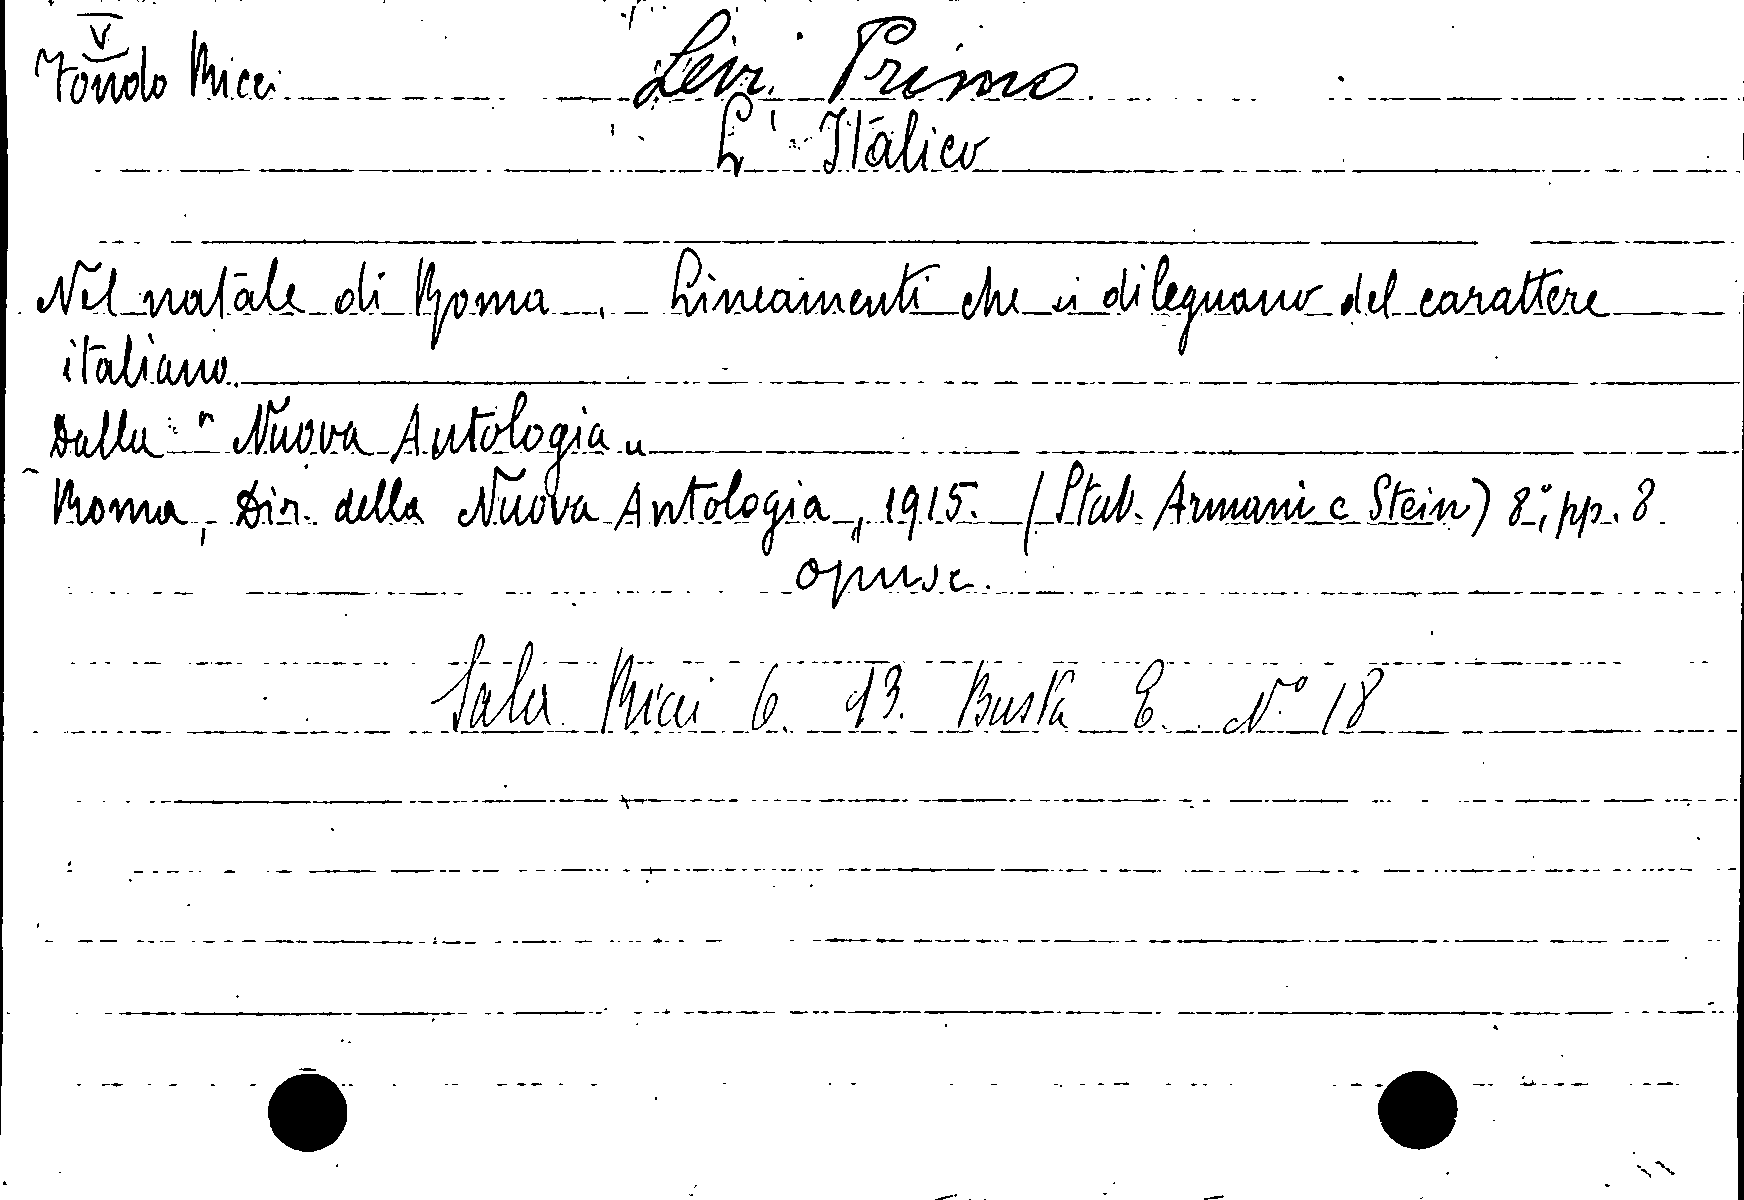 V
Fondo Ricci
Levi Primo
L' Italico
Nel natale di Roma. Lineamenti che si dileguano del carattere
italiano.
Dalla "Nuova Antologia"
Roma, Dir. della Nuova Antologia, 1915. (Stab. Armani e Stein) 8°, pp. 8
opusc.
Sala Ricci 6. 93. Busta E. N° 18